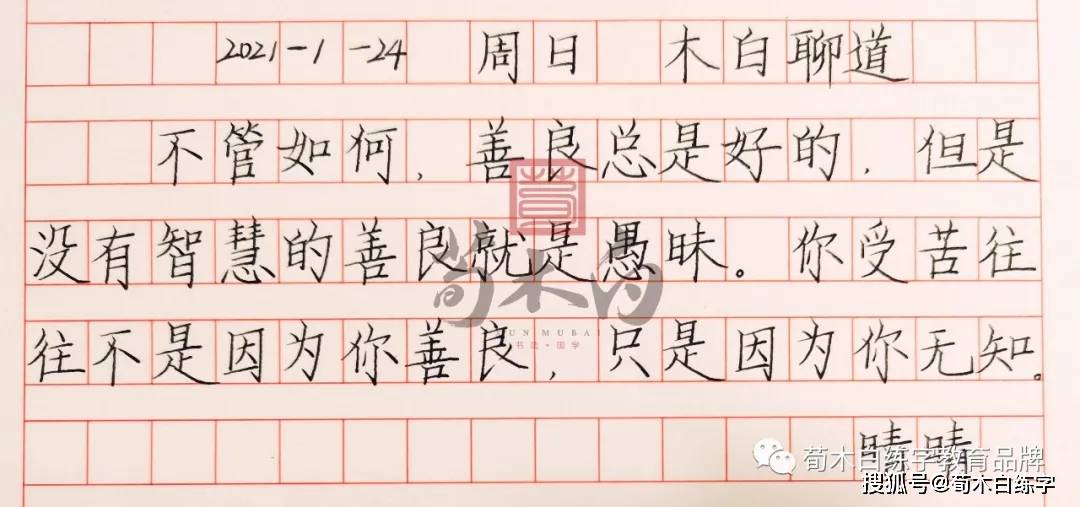 2021-1-24 周日 木白聊道
不管如何，善良总是好的，但是
没有智慧的善良就是愚昧。你受苦往
往不是因为你善良，只是因为你无知。
晴晴
荀木白
XUN MUBAI
书法·国学
荀木白练字教育品牌
搜狐号@荀木白练字